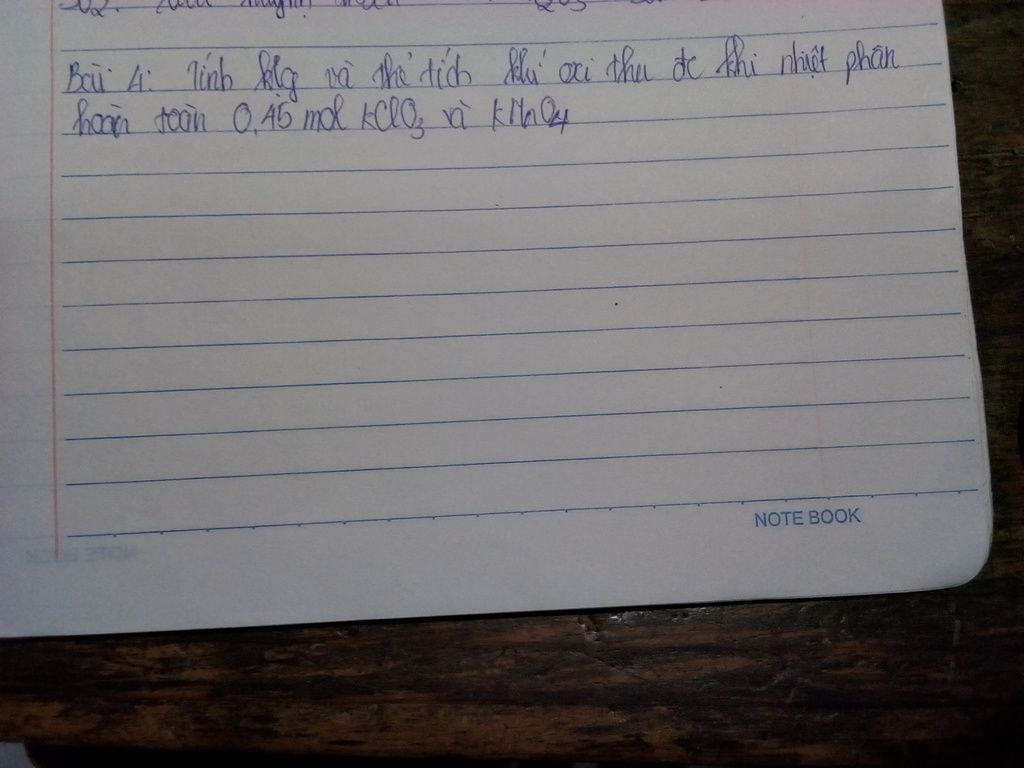 Bài 4: Tính klg và thể tích khí oxi thu đc khi nhiệt phân
hoàn toàn 0,45 mol KClO3 và KMnO4
NOTE BOOK